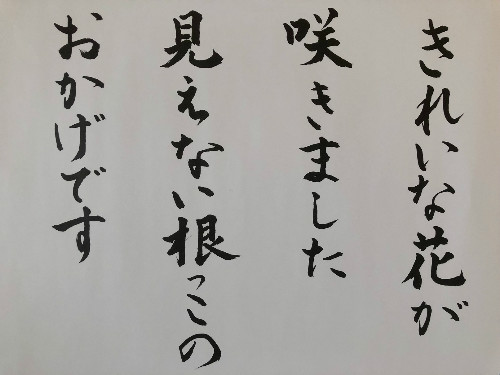 きれいな花が
咲きました
見えない根っこの
おかげです